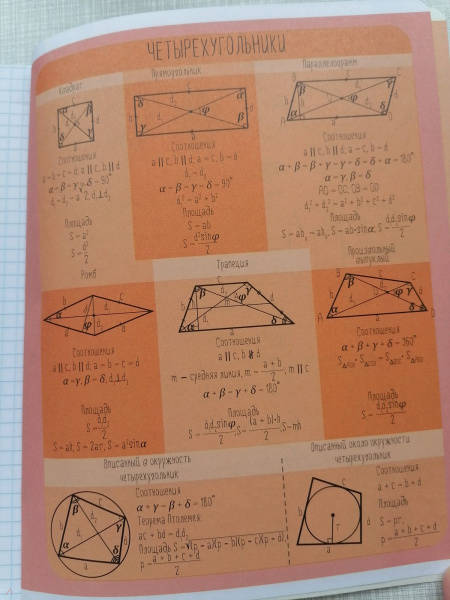 ЧЕТЫРЕХУГОЛЬНИКИ
Квадрат
Соотношения
a = b = c = d; a || c, b || d
α = β = γ = δ = 90°
Площадь
S = a²
S = d²/2
Прямоугольник
Соотношения
a || c, b || d; a = c, b = d
d₁ = d₂
α = β = γ = δ = 90°
d² = a² + b²
Площадь
S = ab
S = d²sinφ/2
Параллелограмм
Соотношения
a || c, b || d; a = c, b = d
α + β = β + γ = γ + δ = δ + α = 180°
α = γ, β = δ
AO = OC, OB = OD
d₁² + d₂² = a² + b² + c² + d²
Площадь
S = ah₁ = bh₂, S = ab·sinα, S = d₁d₂sinφ/2
Ромб
Соотношения
a || c, b || d; a = b = c = d
α = γ, β = δ, d₁⊥d₂
Площадь
S = d₁d₂/2
S = ah, S = 2ar, S = a²sinα
Трапеция
Соотношения
a || c, b ∦ d
m — средняя линия, m = a + b/2, m || c
α + β = γ + δ = 180°
Площадь
S = d₁d₂sinφ/2, S = (a + b)·h/2, S = mh
Произвольный
выпуклый
Соотношения
α + β + γ + δ = 360°
Площадь
S = d₁d₂sinφ/2
Вписанный в окружность
четырехугольник
Соотношения
α + γ = β + δ = 180°
Теорема Птолемея:
ac + bd = d₁d₂
Площадь S = √(p − a)(p − b)(p − c)(p − d),
p = a + b + c + d/2
Описанный около окружности
четырехугольник
Соотношения
a + c = b + d
Площадь
S = pr,
p = a + b + c + d/2